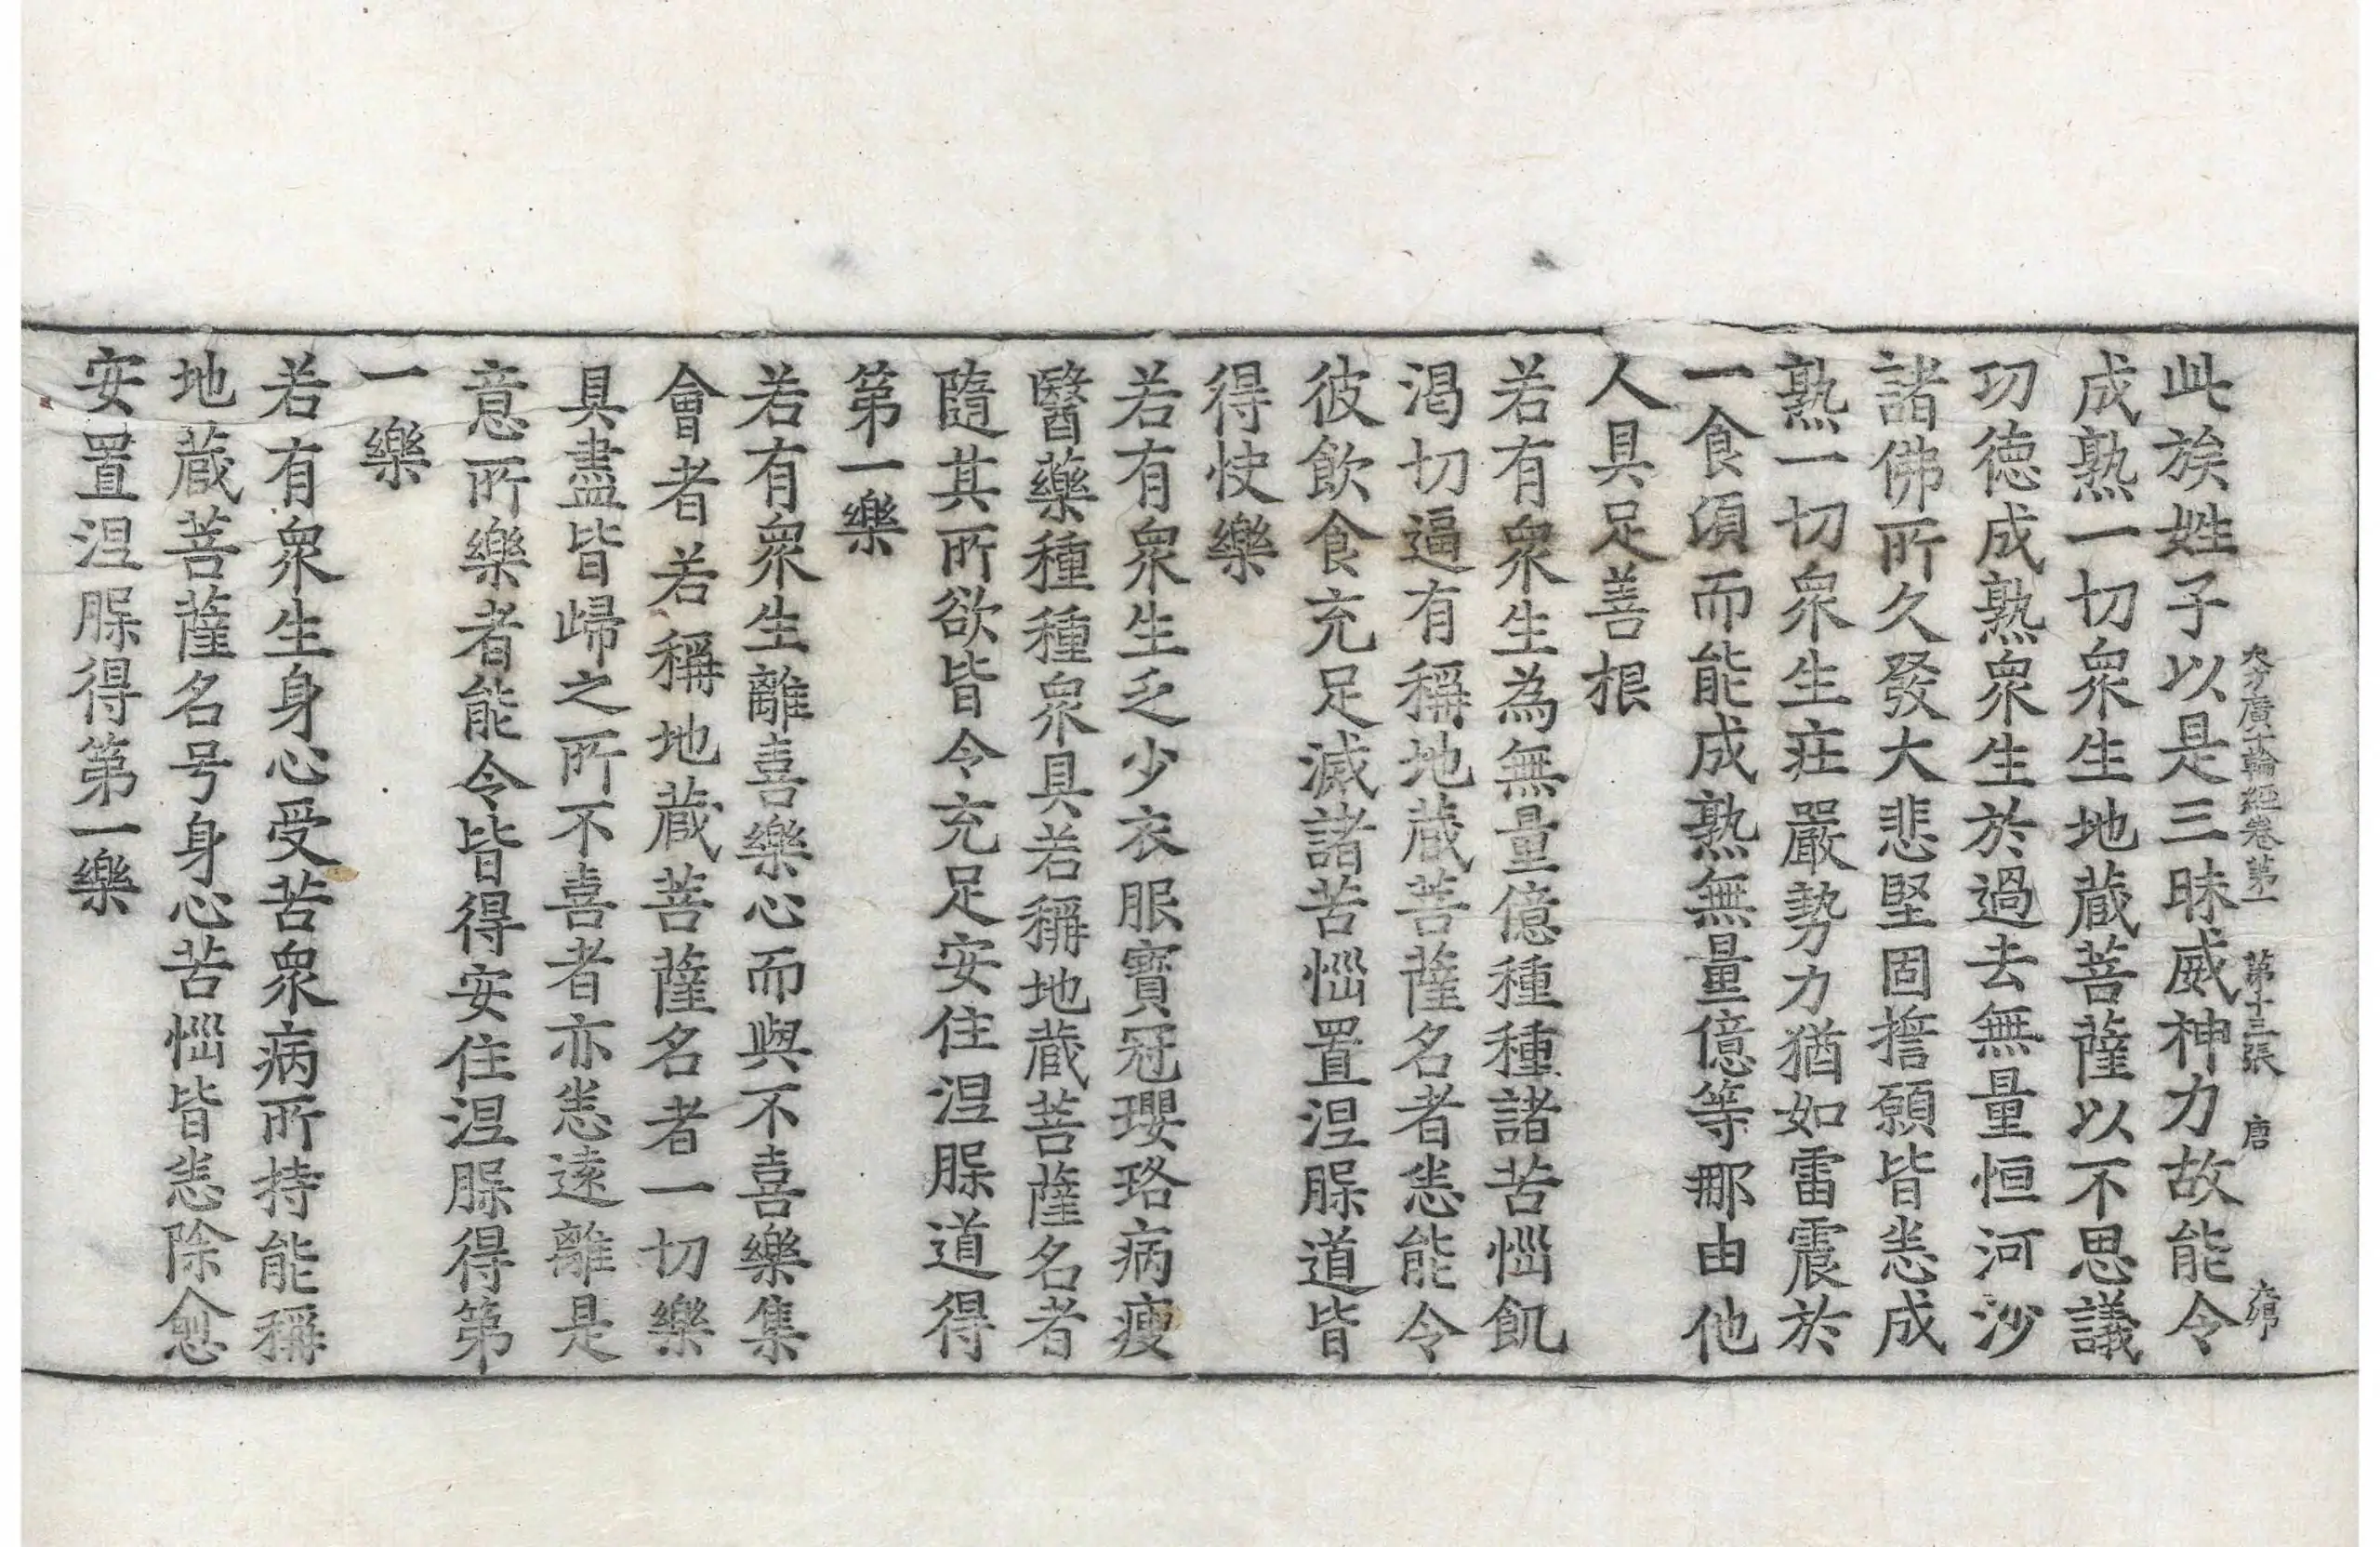 大方廣十輪經卷第一　第十三張　唐
此族姓子以是三昧威神力故能令
成熟一切衆生地蔵菩薩以不思議
功徳成熟衆生於過去無量恒河沙
諸佛所久發大悲堅固擔願皆悉成
熟一切衆生莊嚴勢力猶如雷震於
一食湏而能成熟無量億等那由他
人具足善根
若有衆生為無量億種種諸苦惱飢
渇切逼有稱地蔵菩薩名者悉能令
彼飲食充足滅諸苦惱置涅槃道皆
得快樂
若有衆生乏少衣服寳冠瓔珞病瘦
醫藥種種衆具若稱地蔵菩薩名者
隨其所欲皆令充足安住涅槃道得
第一樂
若有衆生離喜樂心而與不喜樂集
會者若稱地蔵菩薩名者一切樂
具盡皆歸之所不喜者亦悉逺離是
意所樂者能令皆得安住涅槃得第
一樂
若有衆生身心受苦衆病所持能稱
地蔵菩薩名号身心苦惱皆悉除愈
安置涅槃得第一樂